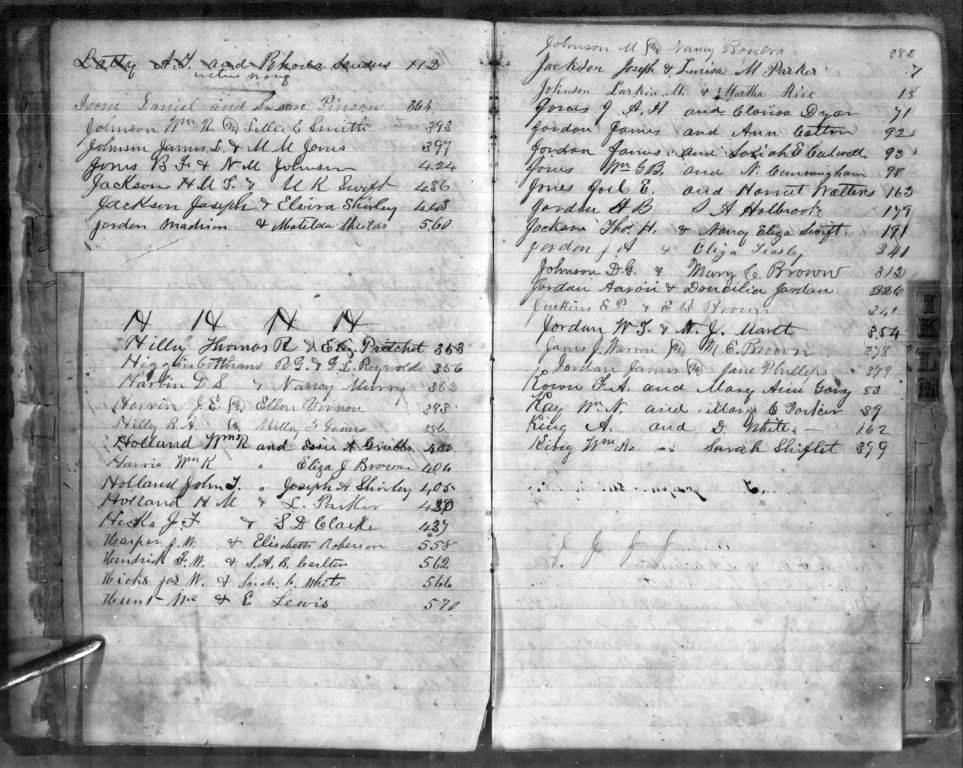 Latty A. T. and Rhoda Sanders 113
Daniel and Susan Pinson 364
Johnson Wm R. & Lillie E Smith 393
Johnson James L & M. M. Jones 397
Jones B F & N. M Johnson 424
Jackson H M T. & M K Swift 486
Jackson Joseph & Elvira Shirley 448
Jordon Madison & Matilda Shields 560
H H H H
Hilly Thomas R & E. Pratchet 353
Higginbotham B G. & G. L. Reynolds 356
Harbin T S & Nancy Murry 363
Herrin J. E & Ellen Vernon 393
Hilly B A. & Milly J Groves 396
Holland Wm R and Grubbs 400
Harris Wm K " Eliza J Brown 404
Holland John T. " Joseph A Shirley 405
Holland H M & L. Parker 430
Hicks J. F & S D Clarke 437
Harper J. W. & Elisabeth Roberson 558
Hendrick F. W. & S. A. B. Carlton 562
Hicks Jas W. & Sarah C. White 566
Hunt Wm & E Lewis 570
Johnson M & Nancy Bowers 282
Jackson Joseph & Luvisa M Parker 7
Johnson Larkin M. & Martha Rice 15
Jones J. A. H and Clarisa Dyar 71
Jordon James and Ann Catton 92
Jordan James and E Caldwell 93
Jones Wm G. B. and N. Cunningham 98
Jones Joel E. and Harriet Walters 163
Jordan H B S A Holbrook 179
Jackson Thos. H. & Nancy Eliza Swift 191
Jordon J A & Eliza Teasly 241
Johnson D. G. & Mary C. Brown 312
Jordan Aaron & Doucilia Jordan 326
Jenkins E P. & E B Brown 341
Jordan W T. & M. J. Marett 354
James J. Warren & M. E. Brown 378
Jordan James & Jane Phillips 379
Kown F. A. and Mary Ann Gary 53
Kay Wm N. and Mary E Parker 89
King A and D White 162
King Wm A. " Sarah Shiflet 379
J J J J